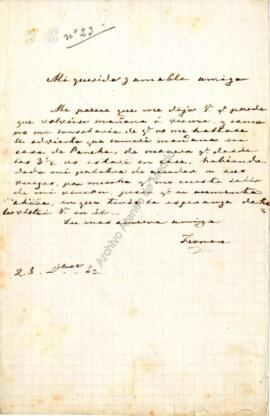 nº 23
Mi querida y amable amiga
Me parece que me dijo V. qe puede
que volviese mañana á verme, y como
no me consolaria de qe no me hallase
le advierto que comeré mañana en
casa de de manera qe desde
las 3 no estaré en casa, habiendo
dado mi palabra de acceder a sus
ruegos, por mucho qe me cueste salir
de mi rincon, pena qe se aumenta
ahora, en que tenia la esperanza de
visita V. en él.
Su mas sincera amiga
Fernan
23
Archivo